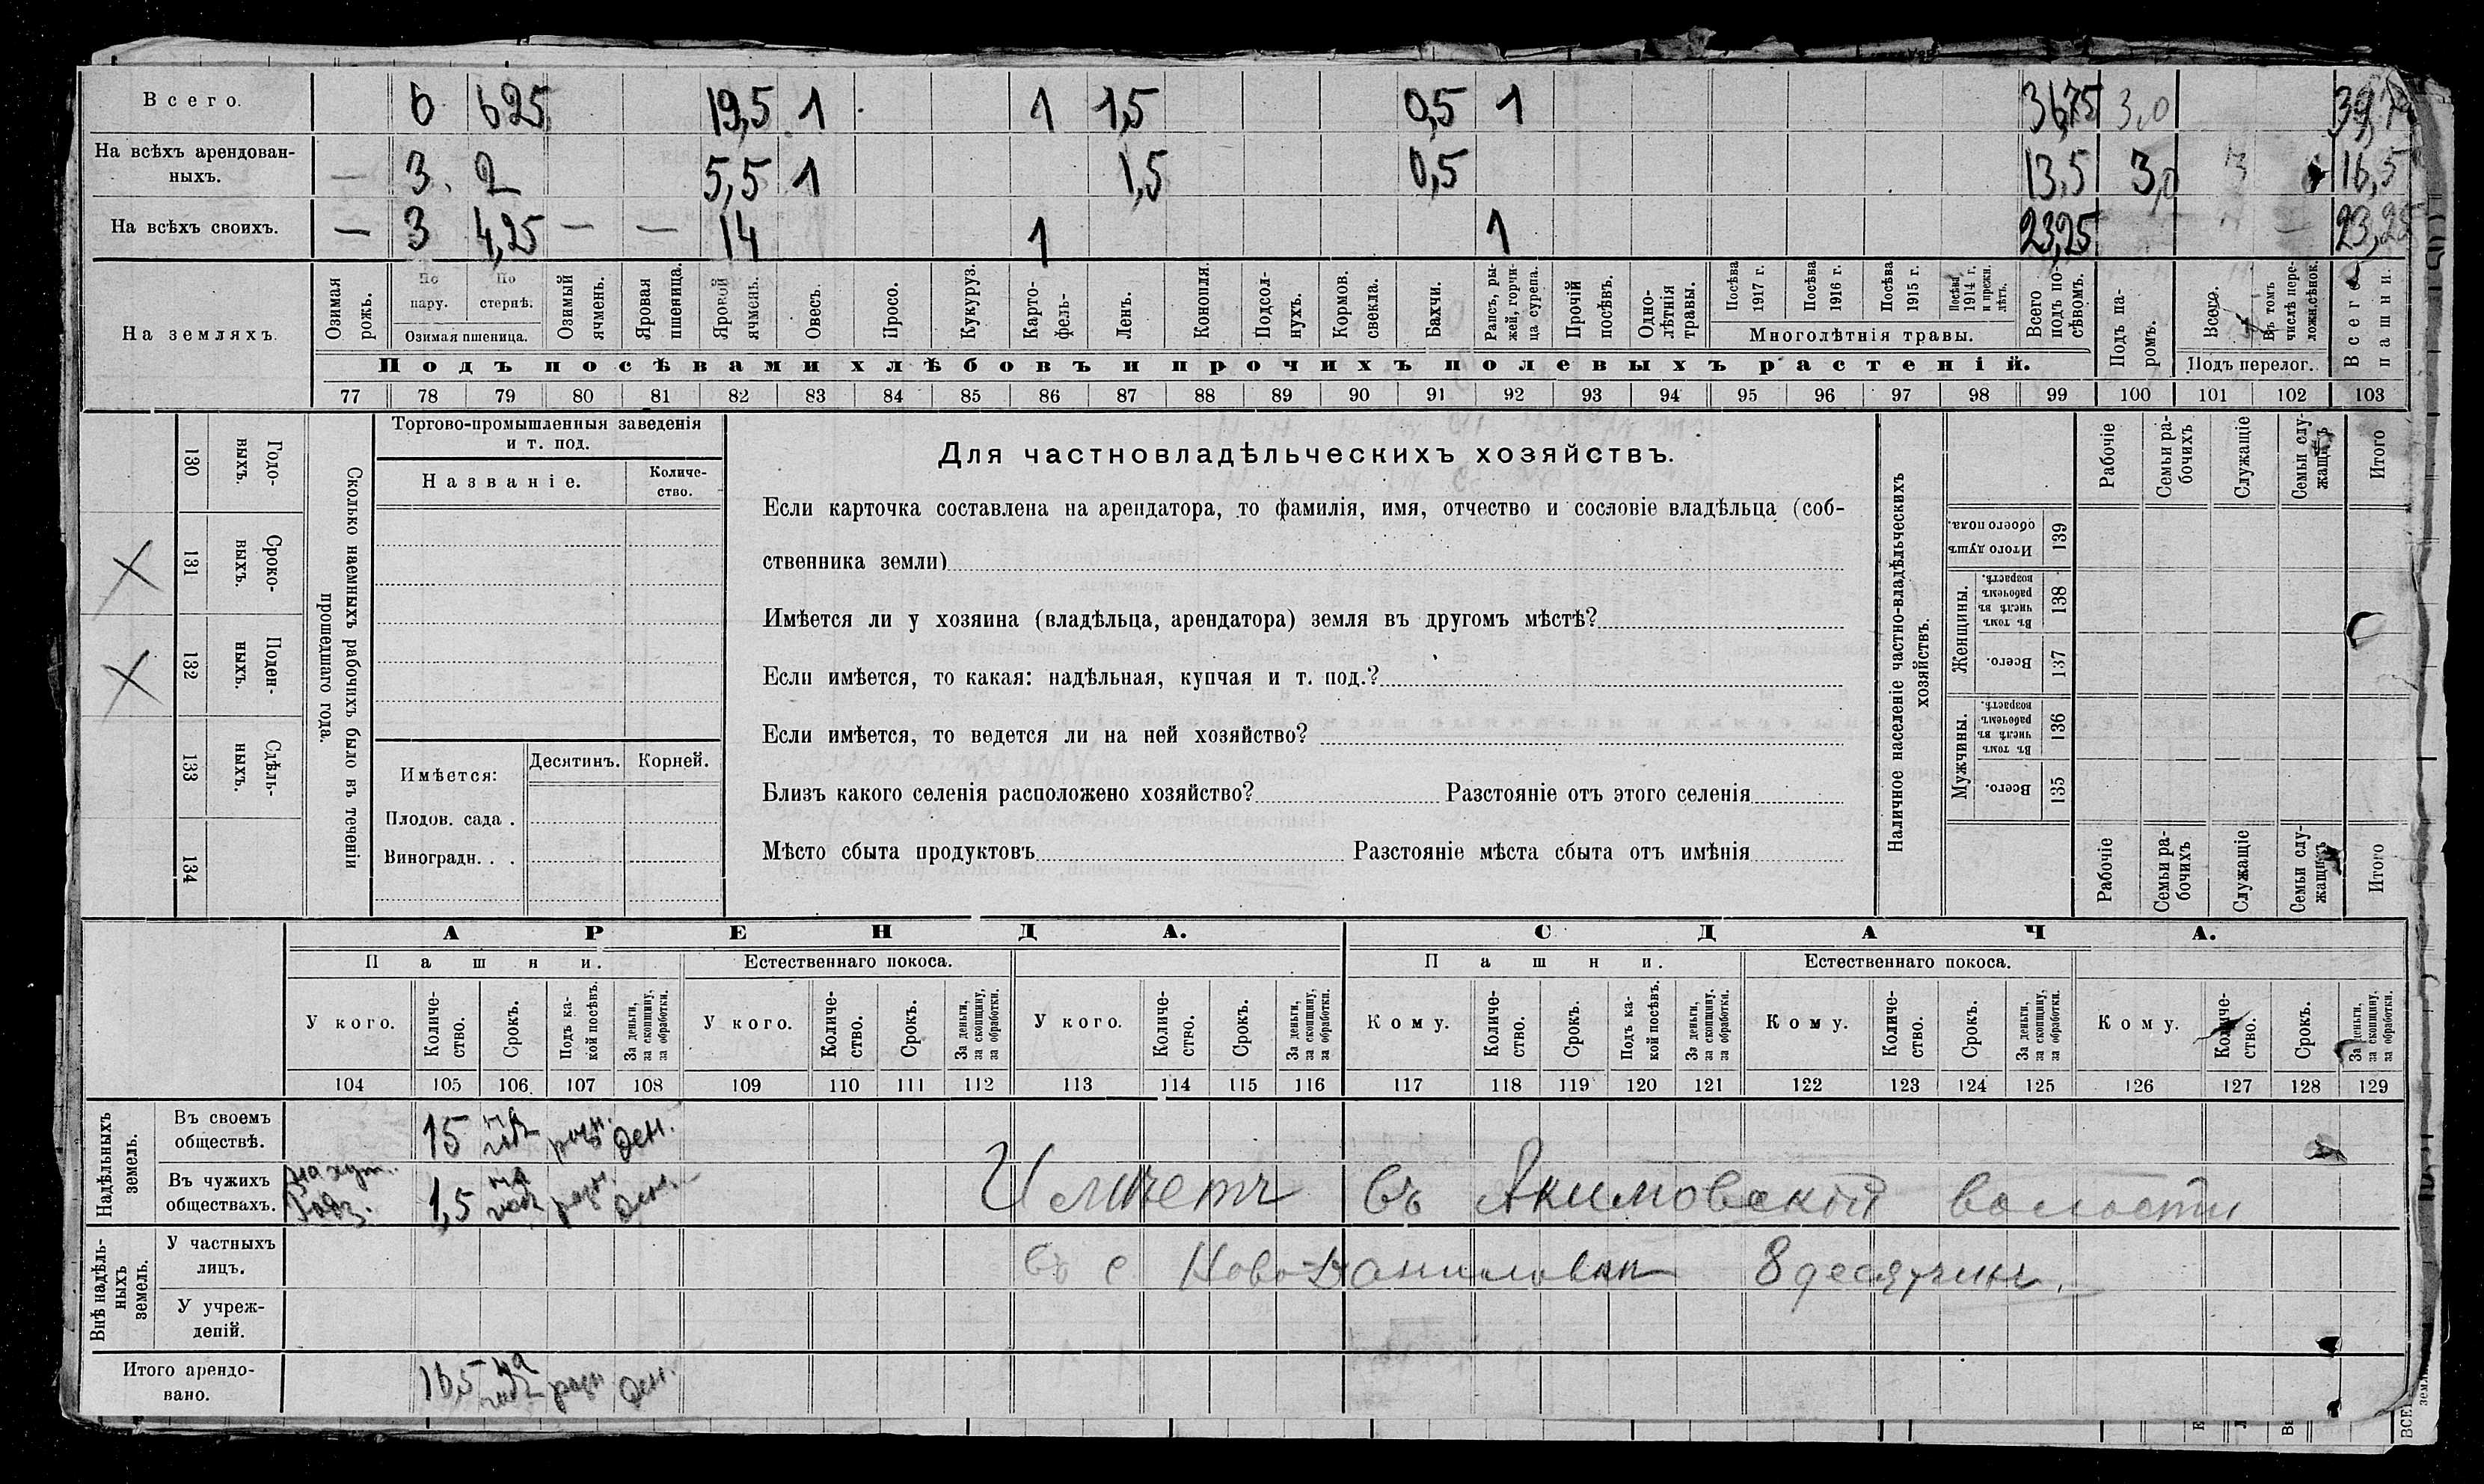 Всего. 6 6 25 19,5 1 1 1,5 0,5 1 36,75 3,0
На всѣхъ арендован-
ныхъ. — 3 2 5,5 1 1,5 0,5 13,5 3,0 16,5
На всѣхъ своихъ. — 3 4,25 — — 14 1 1 23,25 23,25
На земляхъ.
Озимая рожь.
По пару.
По стернѣ.
Озимая пшеница.
Озимый ячмень.
Яровая пшеница.
Яровой ячмень.
Овесъ.
Просо.
Кукуруз.
Карто-
фель-
Ленъ.
Конопля.
Подсол-
нухъ.
Кормов.
свекла.
Бахчи.
Рапсъ, ры-
жей, горчи-
ца сурепа.
Прочій
посѣвъ.
Одно-
лѣтнія
травы.
Посѣва 1917 г.
Посѣва 1916 г.
Посѣва 1915 г.
Посѣва 1914 г. и прежн. лѣтъ.
Многолѣтнія травы.
Всего
подъ по-
сѣвомъ.
Подъ па-
ромъ.
Всего.
Въ томъ
числѣ пере-
ложн.сѣнок.
Подъ перелог.
Всего
пашни.
Подъ посѣвами хлѣбовъ и прочихъ полевыхъ растеній.
77 78 79 80 81 82 83 84 85 86 87 88 89 90 91 92 93 94 95 96 97 98 99 100 101 102 103
130 Годо-
выхъ.
131 Сроко-
выхъ.
132 Поден-
ныхъ.
133 Сдѣль-
ныхъ.
134
Сколько наемныхъ рабочихъ было въ теченіи
прошедшаго года.
Торгово-промышленныя заведенія
и т. под.
Названіе.
Количе-
ство.
Имѣется:
Десятинъ. Корней.
Плодов. сада .
Виноградн. . .
Для частновладѣльческихъ хозяйствъ.
Если карточка составлена на арендатора, то фамилія, имя, отчество и сословіе владѣльца (соб-
ственника земли)
Имѣется ли у хозяина (владѣльца, арендатора) земля въ другомъ мѣстѣ?
Если имѣется, то какая: надѣльная, купчая и т. под.?
Если имѣется, то ведется ли на ней хозяйство?
Близъ какого селенія расположено хозяйство? Разстояніе отъ этого селенія
Мѣсто сбыта продуктовъ Разстояніе мѣста сбыта отъ имѣнія
Наличное населеніе частно-владѣльческихъ
хозяйствъ.
Рабочіе
Семьи ра-
бочихъ
Служащіе
Семьи слу-
жащихъ
Итого
Итого душъ
обоего пола.
139
Женщины.
Въ томъ
числѣ въ
рабочемъ
возрастѣ.
138
Всего.
137
Мужчины.
Въ томъ
числѣ въ
рабочемъ
возрастѣ.
136
Всего.
135
Рабочіе
Семьи ра-
бочихъ
Служащіе
Семьи слу-
жащихъ
Итого
АРЕНДА. СДАЧА.
Пашни. Естественнаго покоса. Пашни. Естественнаго покоса.
У кого.
Количе-
ство.
Срокъ.
Подъ ка-
кой посѣвъ.
За деньги,
за скопщину,
за обработки.
У кого.
Количе-
ство.
Срокъ.
За деньги,
за скопщину,
за обработки.
У кого.
Количе-
ство.
Срокъ.
За деньги,
за скопщину,
за обработки.
Кому.
Количе-
ство.
Срокъ.
Подъ ка-
кой посѣвъ.
За деньги,
за скопщину,
за обработки.
Кому.
Количе-
ство.
Срокъ.
За деньги,
за скопщину,
за обработки.
Кому.
Количе-
ство.
Срокъ.
За деньги,
за скопщину,
за обработки.
104 105 106 107 108 109 110 111 112 113 114 115 116 117 118 119 120 121 122 123 124 125 126 127 128 129
Надѣльныхъ
земель.
Въ своемъ
обществѣ. 15 на годъ разн. ден.
Въ чужихъ
обществахъ. 1,5 на годъ разн. ден.
Имѣетъ въ Акимовской волости
Внѣ надѣль-
ныхъ
земель.
У частныхъ
лицъ.
въ с Ново-Даниловки 8 десятинъ.
У учреж-
деній.
Итого арендо-
вано. 16,5 на годъ разн. ден.